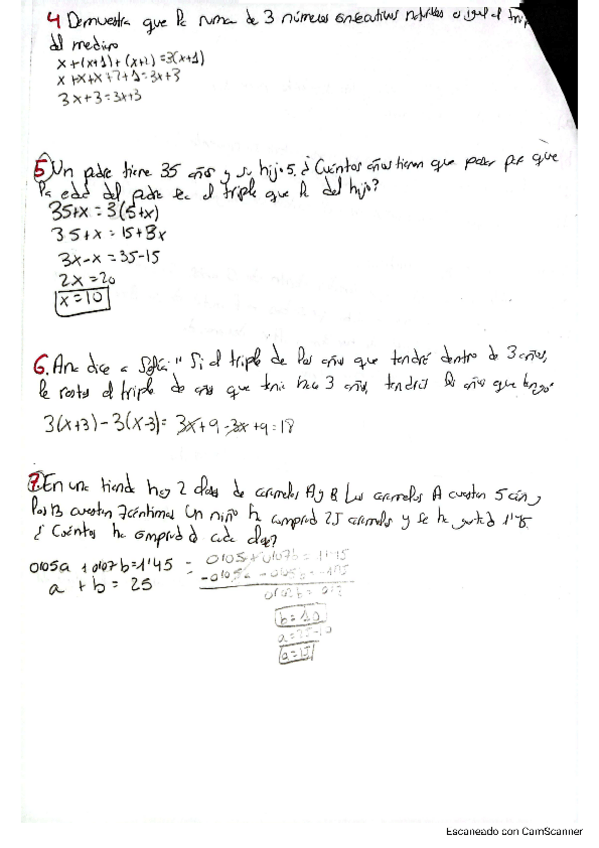 4 Demuestra que la suma de 3 números consecutivos es igual al
del medio
x+(x+1)+(x+2)=3(x+1)
x+x+x+2+1=3x+3
3x+3=3x+3
5 Un padre tiene 35 años y su hijo 5. ¿Cuántos años tienen que pasar para que
la edad del padre sea el triple que la del hijo?
35+x=3(5+x)
35+x=15+3x
3x-x=35-15
2x=20
x=10
6. Ana dice a Sofía: "Si al triple de los años que tendré dentro de 3 años,
le restas el triple de años que tenía hace 3 años, tendrás los años que tengo.
3(x+3)-3(x-3)= 3x+9-3x+9=18
7. En una tienda hay 2 clases de caramelos A y B. Los caramelos A cuestan 5 cén y
los B cuestan 7 céntimos. Un niño ha comprado 25 caramelos y se ha gastado
¿Cuántos ha comprado de cada clase?
0'05a+0'07b=1'45
a+b=25
b=10
a=25-10
a=15
Escaneado con CamScanner